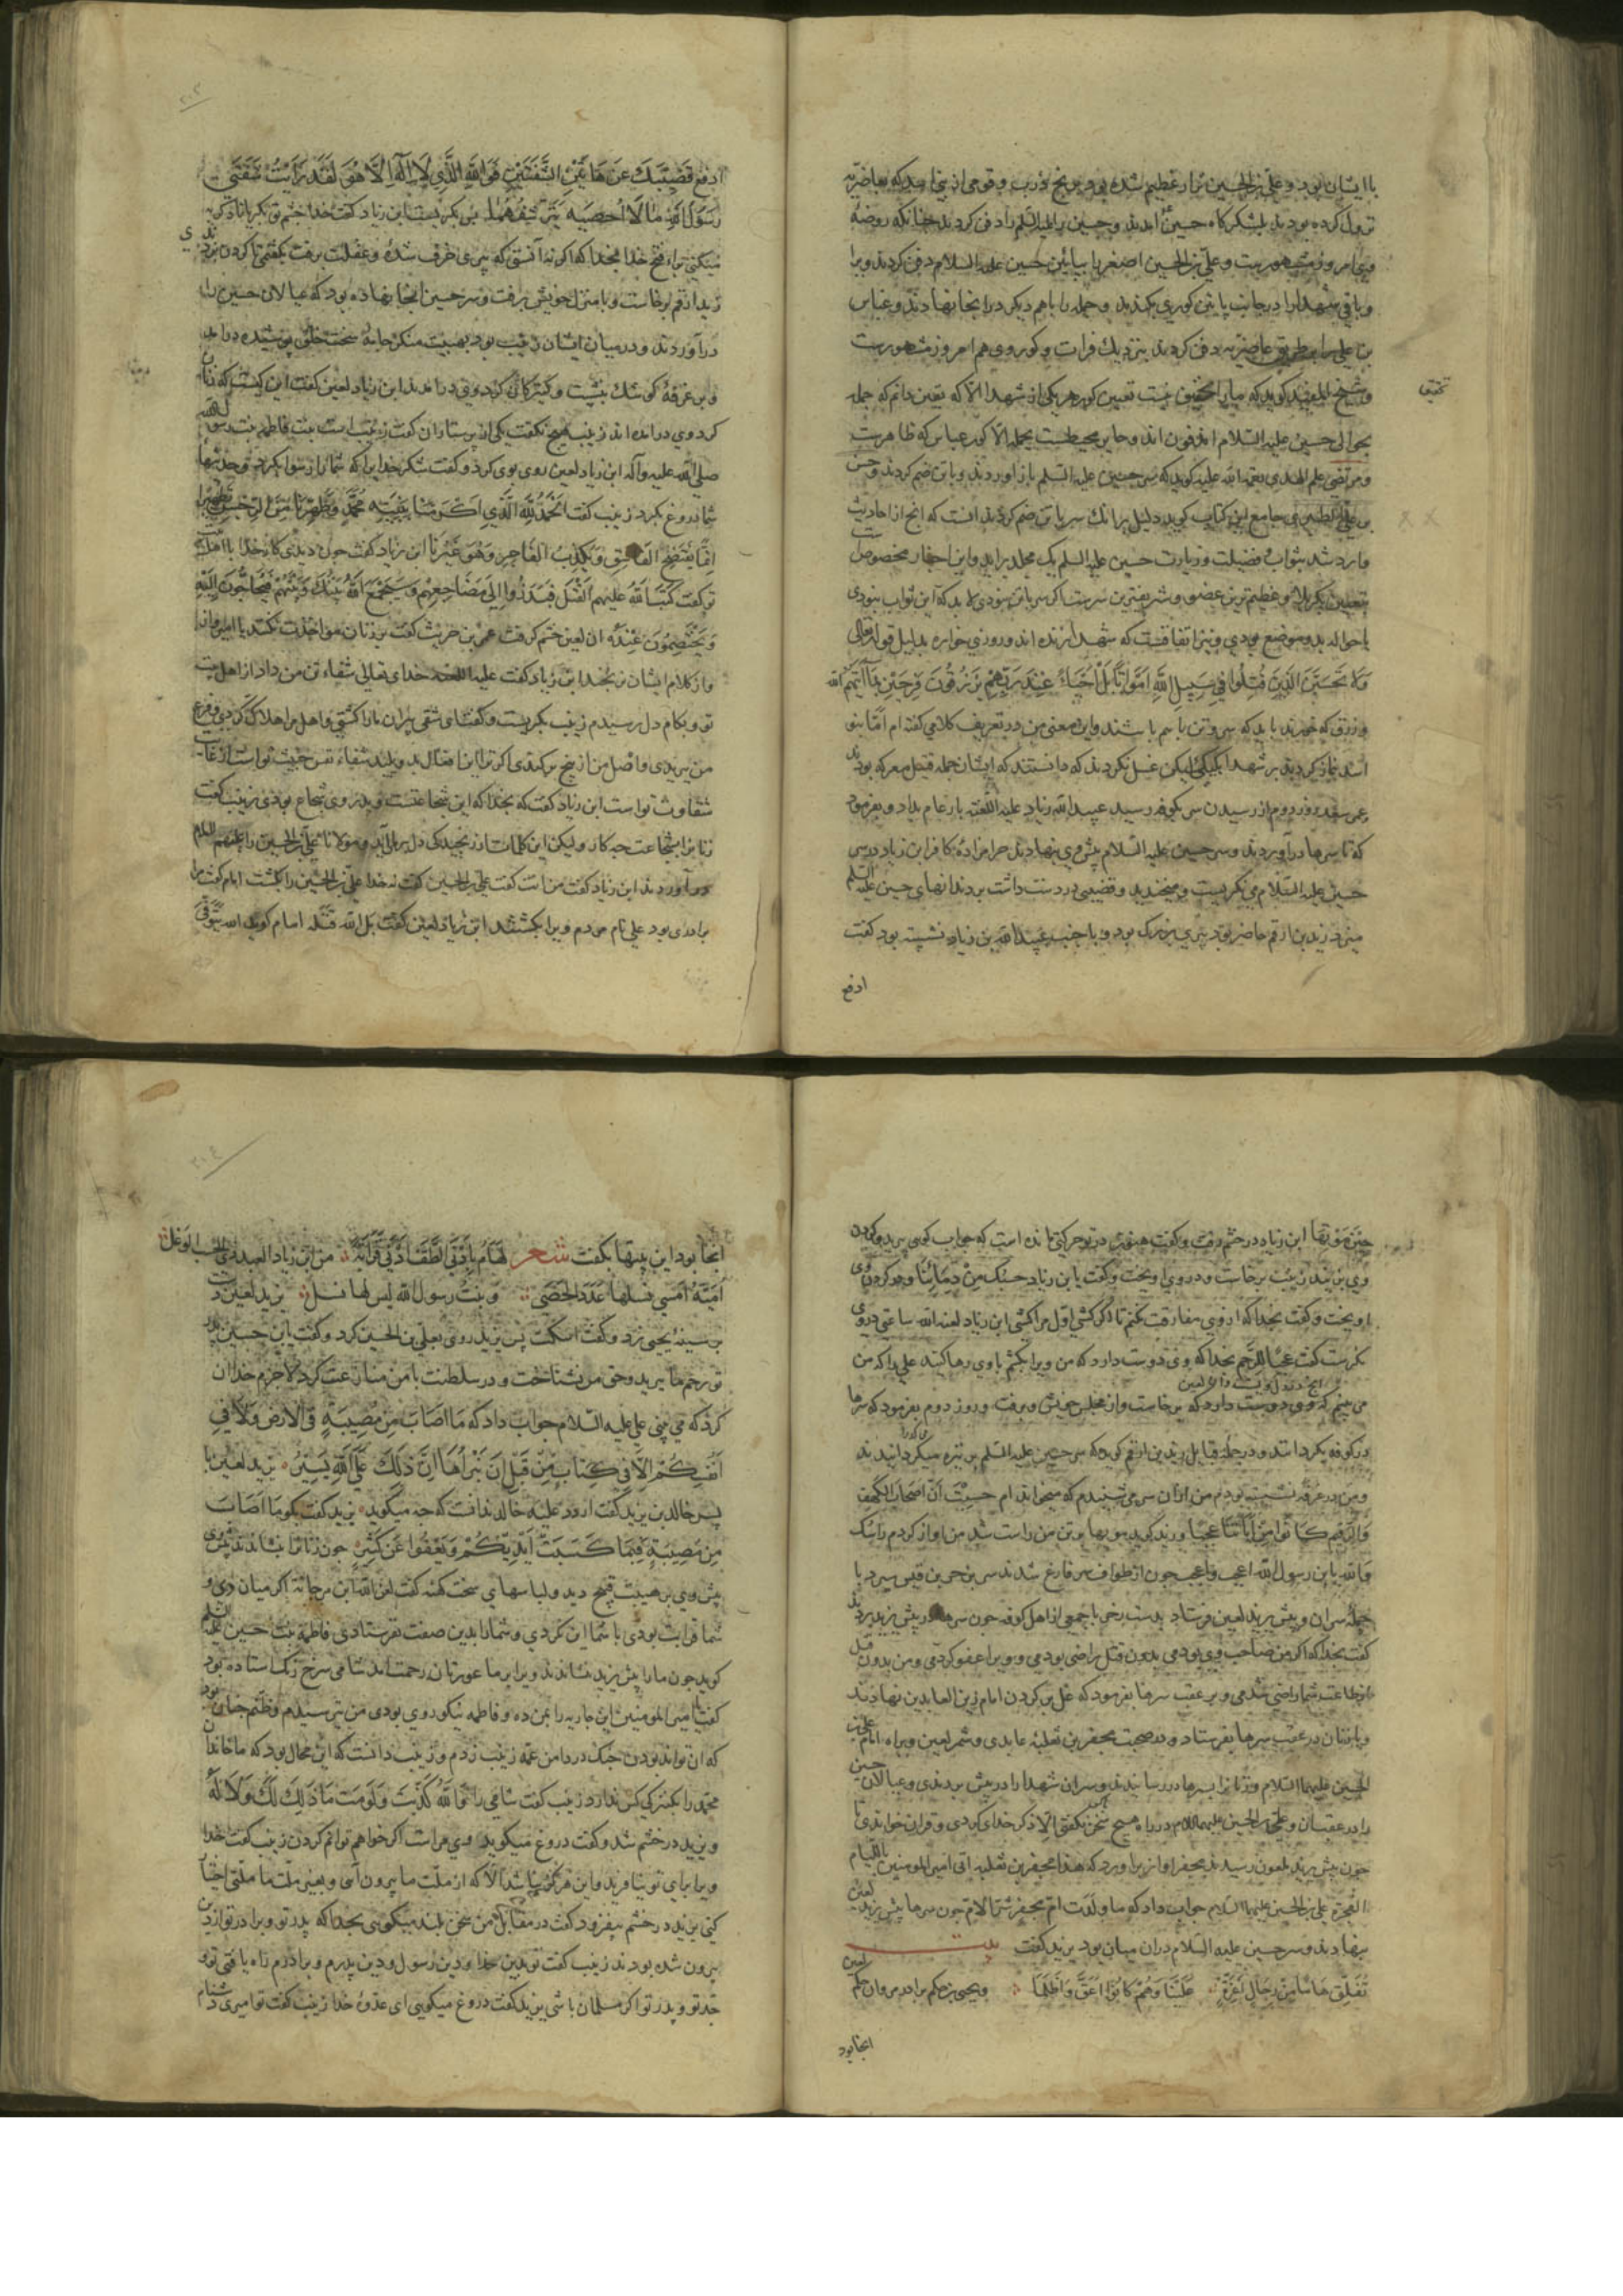 با ایشان بود و علی بن الحسین نزار عظیم شده بود و برنج و قومی از بنی اسد که بغاضریه
نزول کرده بودند بلشکرگاه حسین آمدند و حسین را علیه السلم را دفن کردند چنانکه روضهٔ
وی امروز مشهورست و علی بن الحسین اصغر را بپایین حسین علیه السلام دفن کردند و برا
و باقی شهدا را در جانب پایین کوری بکندند و جمله را باهم دیکر در انجا نهادند و عباس
بن علی را بطریق غاضریه دفن کردند بنزدیک فرات و کور وی هم امروز مشهورست
و شیخ المفید کوید که ما را تحقیق نیست تعیین کور هر یکی از شهدا الا که یقین دانم که جمله
تحقیق
بحوالی حسین علیه السلام اند و حایر محیطست بجمله الا کور عباس که ظاهرست
و مرتضی علم الهدی رحمة الله علیه کوید که سر حسین علیه السلم باز آوردند و با تن ضم کردند و حسن
بن علی الطبرسی جامع این کتاب کوید دلیل برانک سر با تن ضم کردند انست که انچ از احادیث
وارد شد بثواب فضیلت و زیارت حسین علیه السلم یک مجلد برآید و این اخبار مخصوص است
بتعیین کربلا و عظیم ترین عضو و شریفترین سرست اکر سر با تن نبودی لابد که این ثواب نبودی
یا حواله بدو موضع بودی و نیز اتفاقست که شهدا زنده اند و روزی خواره بدلیل قوله تعالی
وَلَا تَحْسَبَنَّ الَّذِينَ قُتِلُوا فِي سَبِيلِ اللَّهِ أَمْوَاتًا بَلْ أَحْيَاءٌ عِنْدَ رَبِّهِمْ يُرْزَقُونَ فَرِحِينَ بِمَا آتَيهُمُ اللّه
و رزق که خورند باید که سر و تن با هم باشند و این معنی من در تعریف کلامی کفته ام اما بنو
اسد نماز کردند بر شهدا یکیک لیکن غسل نکردند که دانستند که ایشان جمله قتیل معرکه بودند
عمر سعد روز دوم از رسیدن سر بکوفه رسید عبید الله زیاد علیه اللعنه بار عام بداد و بفرمود
که تا سرها درآوردند و سر حسین علیه السلام پیش وی بنهادند حرامزادهٔ کافر ابن زیاد در سر
حسین علیه السلام می نکریست و میخندید و قضیبی در دست داشت بر دندانهای حسین علیه السلم
میزد زید بن ارقم حاضر بود پیری بزرک بود و با جنب عبید الله بن زیاد نشسته بود کفت
ادفع
۲۰۳
اِدفع قَضِيبَكَ عَن هَاتَيْنِ الشَّفَتَيْنِ فَوَاللَّهِ الَّذِي لَا اِلٰهَ اِلَّا هُوَ لَقَد رَاَيْتُ شَفَتَي
رَسُولِ اللهِ مَا لَا اُحصِيهِ يَتَرَشَّفُهُمَا بس بکریست ابن زیاد کفت خدا چشم تو بکریاناد کریه
میکنی برای فتح خدا بخدا که اکر نه آنستی که پیری خرف شدهٔ و عقلت برفت بکفتمی تا کردن بزدندی
زید ارقم برخاست و با منزل خویش رفت و سر حسین انجا نهاده بود که عیالان حسین را
درآوردند و در میان ایشان زینب بود بهیبت منکر جامهٔ سخت خلق پوشیده درآمد
و بر غرفهٔ کوشک بنشست و کنیزکان کرد وی درآمدند ابن زیاد لعین کفت این کیست که زنان
کرد وی درآمده اند زینب هیچ نکفت یکی از پرستاران کفت زینب است بنت فاطمه بنت رسول الله
صلی الله علیه و آله ابن زیاد لعین روی بوی کرد و کفت شکر خدایرا که شما را رسوا بکرد و حدیثها
شما دروغ بکرد زینب کفت اَلحَمدُ لِلَّهِ الَّذِي اَكرَمَنَا بِنَبِيِّهِ مُحَمَّدٍ وَطَهَّرَنَا مِنَ الرِّجسِ تَطهِيرًا
اِنَّمَا يَفتَضِحُ الفَاسِقُ وَيَكذِبُ الفَاجِرُ وَهُوَ غَيرُنَا ابن زیاد کفت چون دیدی کار خدا با اهل بیت
تو کفت كَتَبَ اللهُ عَلَيهِمُ القَتلَ فَبَرَزُوا اِلَي مَضَاجِعِهِم وَسَيَجمَعُ اللهُ بَينَكَ وَبَينَهُم فَتُحَاجُّونَ اِلَيهِ
وَتَختَصِمُونَ عِندَهُ آن لعین خشم کرفت عمرو بن حریث کفت بر زنان مواخذت نکنند یا امیر و از
و از کلام ایشان نرنجند ابن زیاد کفت علیه اللعنه خدای تعالی شفاء تن من داد از اهل بیت
تو و بکام دل رسیدم زینب بکریست و کفت ای شقی پیران ما را کشتی و اهل مرا هلاک کردی و فرع
من بریدی و اصل من از بیخ برکندی اکر ترا این افعال بد و پلید شفاء نفس خبیث تو است از غایت
شقاوت تو است ابن زیاد کفت که بخدا که این شجاعتست و پدر وی شجاع بودی زینب کفت
زنانرا بشجاعت چه کار ولیکن این کلمات از رنجیدکی دل برمی آید و مولانا علی بن الحسین را علیهم السلام
درآوردند ابن زیاد کفت من انت کفت علی بن الحسین کفت نه خدا علی بن الحسین را بکشت امام کفت مرا
برادری بود علی نام مردم ویرا بکشتند ابن زیاد لعین کفت بل الله قتله امام کوید الله يَتَوَفَّي
حِينَ مَوْتِهَا ابن زیاد در خشم رفت و کفت هنوز در تو حرکتی مانده است که جواب کویی ببرید و کردن
وی بزنید زینب برخاست و در وی آویخت و کفت یا ابن زیاد حَسبُكَ مِنْ دِمَائِنَا و در کردن وی
اویخت و کفت بخدا که از وی مفارقت نکنم تا اکر کشی اول مرا کشی ابن زیاد لعنه الله ساعتی در وی
نکریست کفت عَجَبًا لِلرَّحِمِ بخدا که وی دوست دارد که من ویرا بکشم با وی رها کنید علی را که من
می بینم که وی دوست دارد که برخاست و از مجلس خویش برفت و روز دوم بفرمود که سرها
در کوفه بکردانند و در جملهٔ قبایل زید بن ارقم کوید که سر حسین علیه السلم بر نیزه میکردانیدند
و من در غرفه نشسته بودم من از آن سر می شنیدم که میخواند ام حَسِبْتَ اَنَّ اَصحَابَ الكَهفِ
وَالرَّقِيمِ كَانُوا مِنْ آيَاتِنَا عَجَبًا و زید کوید مویها بر تن من راست شد من آواز کردم رَاسُكَ
وَاللهِ یا ابن رسول الله اعجب و اعجب چون از طواف سر فارغ شدند سر بزحر بن قیس سپرد با
جملهٔ سران و پیش یزید لعین فرستاد بدست زحر با جمعی از اهل کوفه چون سرها در پیش یزید بردند
کفت بخدا که اکر من صاحب وی بودمی بدون قتل راضی بودمی و ویرا عفو کردمی و من بدون قتل
از طاعت شما راضی شدمی و بر عقب سرها بفرمود که غل بر کردن امام زین العابدین نهادند
و با زنان در عقب سرها بفرستاد و در صحبت محفر بن ثعلبهٔ عایدی و شمر لعین و براه امام علی بن
الحسین علیهما السلام و زنانرا بسرها در رسانیدند و سران شهدا را در پیش بردندی و عیالان حسین
را در عقب سان و علی بن الحسین علیهما السلام در راه هیچ سخن نکفتی الا ذکر خدای کردی و قران خواندی تا
چون پیش یزید ملعون رسیدند محفر آواز برآورد که هذا محفر بن ثعلبه اتی امیر المومنین باللئام
الفجرة علی بن الحسین علیهما السلام جواب داد که ما ولدت ام محفر شر و الام چون سرها پیش یزید لعین
بنهادند و سر حسین علیه السلام دران میان بود یزید کفت بیت
نُفَلِّقُ هَامًا مِنْ رِجَالٍ اَعِزَّةٍ عَلَيْنَا وَهُمْ كَانُوا اَعَقَّ وَاَظْلَمَا و یحیی بن حکم برادر مروان حکم لعین
انجا بود
۲۰۴
انجا بود این بیتها بکفت شعر لَهَامٌ بِاَدْنَي الطَّفِّ اَدْنَي قَرَابَةً من ابن زیاد العبد ذی الحسب الوغل
اُمَيَّةُ اَمْسَي نَسْلُهَا عَدَدَ الْحَصَي و بنت رسول الله لیس لها نسل یزید لعین دست
بر سینهٔ یحیی زد و کفت اسکت پس یزید روی بعلی بن الحسین کرد و کفت یا ابن حسین پدر
تو رحم ما ببرید و حق من نشناخت و در سلطنت با من منازعت کرد لاجرم خدا آن
کرد که می بینی علی علیه السلام جواب داد که مَا اَصَابَ مِنْ مُصِيبَةٍ فِي الْاَرْضِ وَلَا فِي
اَنْفُسِكُمْ اِلَّا فِي كِتَابٍ مِنْ قَبْلِ اَنْ نَبْرَاَهَا اِنَّ ذٰلِكَ عَلَي اللهِ يَسِيرٌ یزید لعین با
پسر خالد بن یزید کفت اردد علیه خالد ندانست که چه میکوید یزید کفت بکو مَا اَصَابَ
مِنْ مُصِيبَةٍ فَبِمَا كَسَبَتْ اَيْدِيكُمْ وَيَعْفُوا عَنْ كَثِيرٍ چون زنانرا بنشاندند پیش وی
پیش وی بر هیبت قبیح دید و لباسهای سخت کهنه کفت لعن الله ابن مرجانة اکر میان وی و
شما قرابت بودی با شما این نکردی و شما را بدین صفت نفرستادی فاطمه بنت حسین علیه السلم
کوید چون ما را پیش یزید نشاندند ویرا بر ما عورتان رحمت آمد شامی سرخ رنک استاده بود
کفت یا امیر المومنین این جاریه را بمن ده و فاطمه نیکو روی بودی من بترسیدم و ظنم چنان بود
که آن تواند بودن چنک در دامن عمه زینب زدم و زینب دانست که این محال بود که ما خاندان
محمد را بکنیزکی کس ندارد زینب کفت شامی را وَاللهِ كَذَبْتَ وَلَوُمْتَ مَا ذٰلِكَ لَكَ وَلَا لَهُ
و یزید در خشم شد و کفت دروغ میکویی وی مراست اکر خواهم توانم کردن زینب کفت خدا
ویرا برای تو نیافرید و این هرکز نباشد الا که از ملت ما بیرون آیی و بغیر ملت ما ملتی اختیار
کنی یزید در خشم بیفزود کفت در مقابل من سخن بلند میکویی بخدا که پدر تو و برادر تو از دین
بیرون شده بودند زینب کفت تو بدین خدا و دین رسول و دین پدرم و برادرم راه یافتی تو و
جد تو و پدر تو اکر مسلمان باشی یزید کفت دروغ میکویی ای عدوهٔ خدا زینب کفت تو امیری دشنام